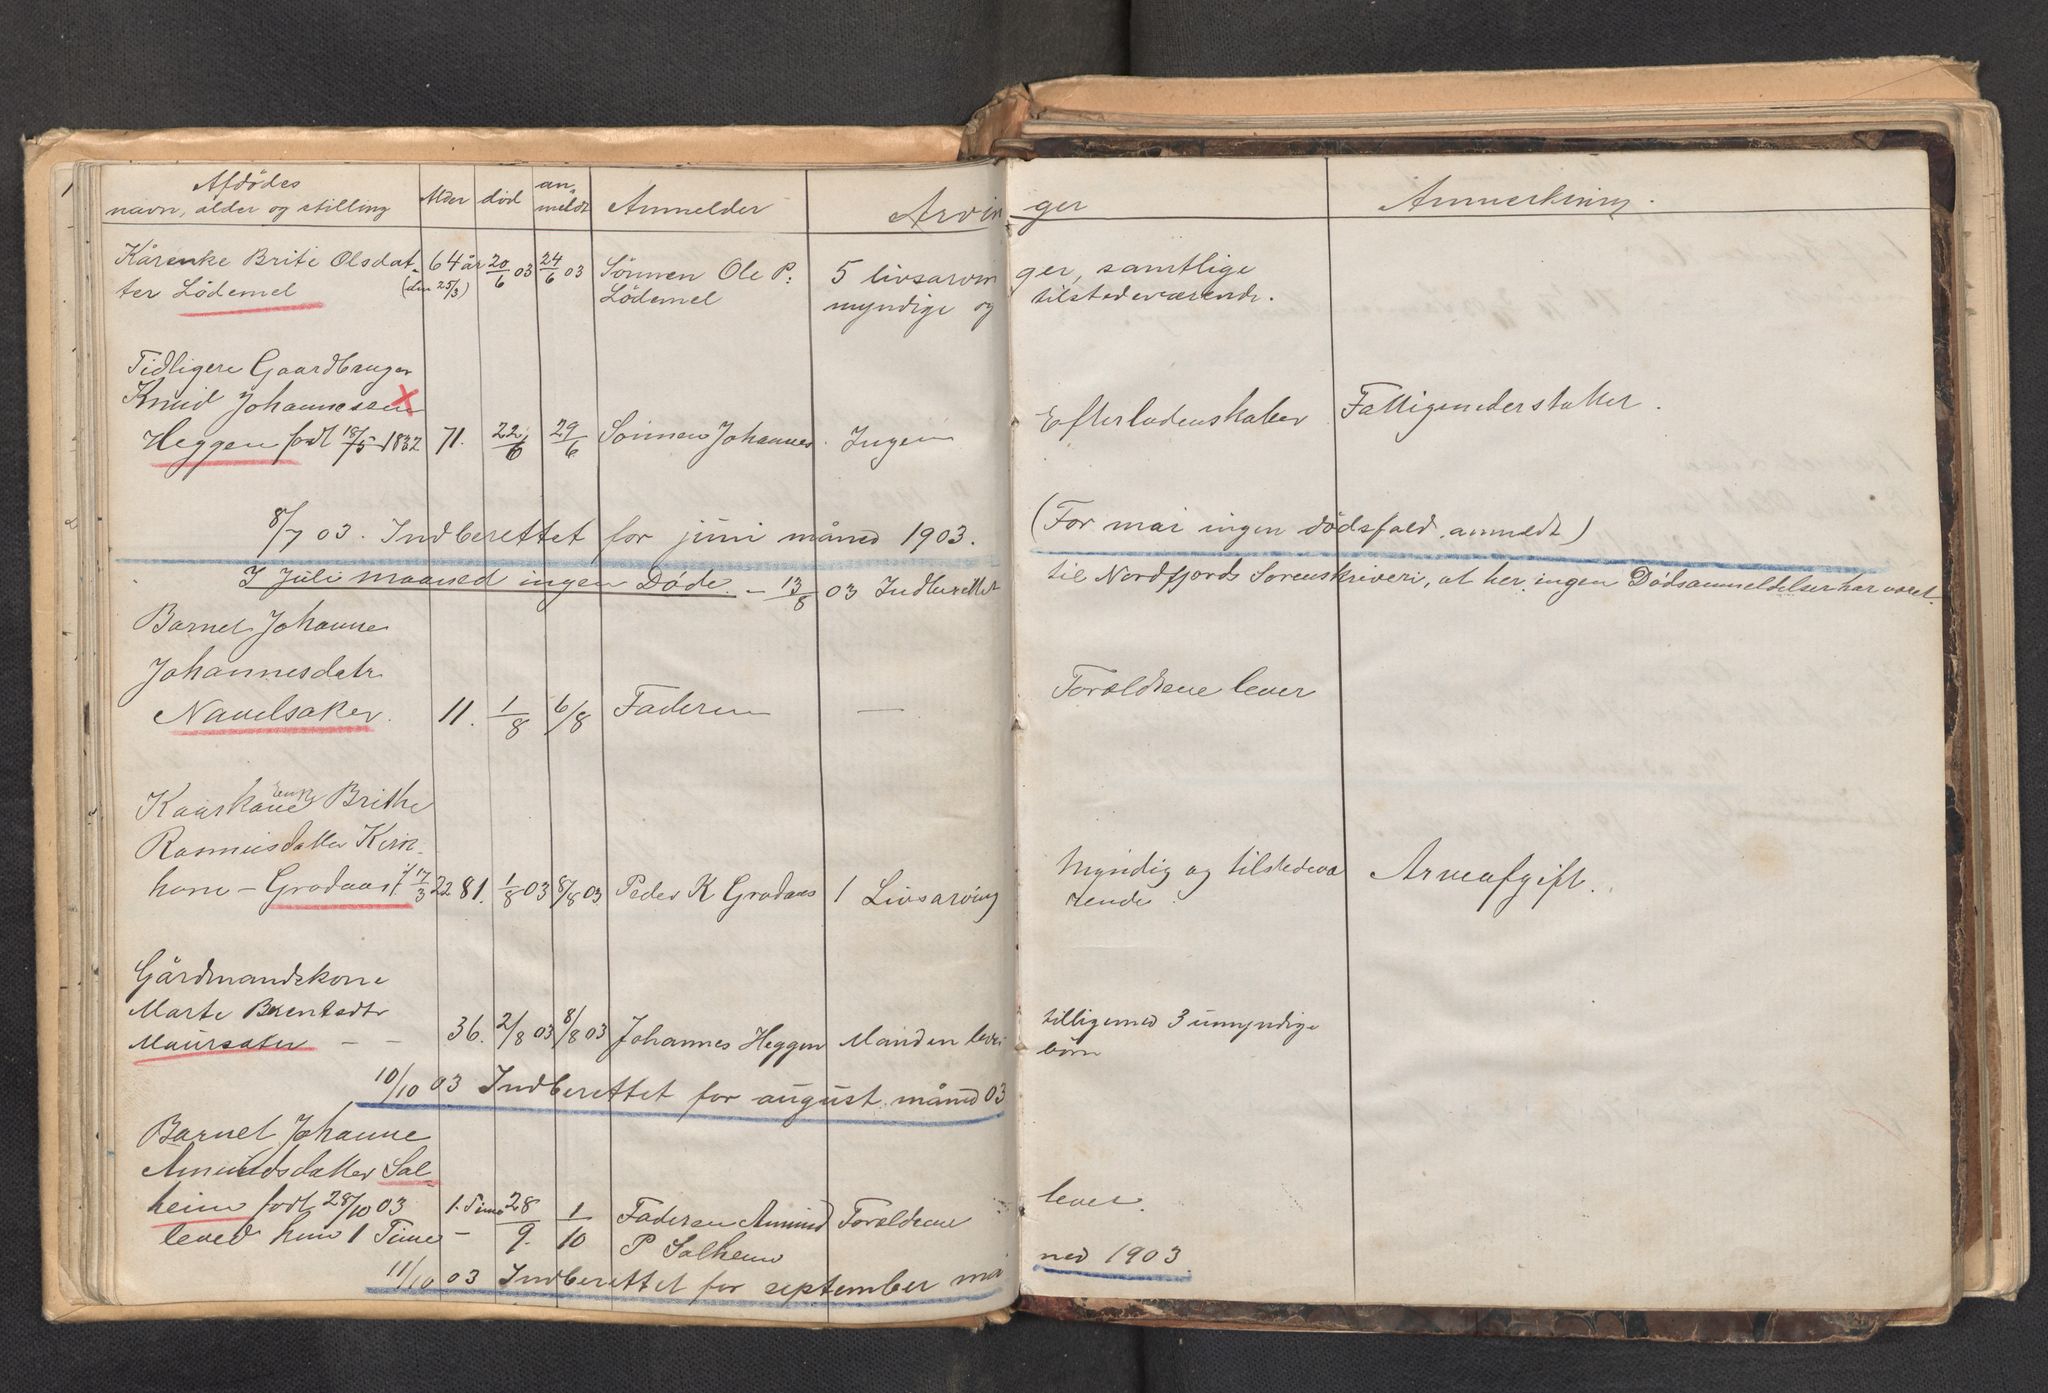 Afdødes
navn, alder og stilling Alder død an- meldt Anmelder Arvin ger Anmerkning.
Kårenke Brite Olsdat- 64 år 20/6 03 24/6 03 Sønnen Ole P: 5 livsarvin ger, samtlige
ter Lødemel (den 25/3) Lødemel myndige og tilstedeværende.
Tidligere Gaardbruger
Knud Johannessen
Heggen født 18/5 1832 71. 22/6 29/6 Sønnen Johannes Ingen Efterladenskaber Fattigunderstøttet.
8/7 03. Indberettet for juni måned 1903. (For mai ingen dødsfald anmeldt)
I Juli maaned ingen Døde. – 13/8 03 Indberettet til Nordfjords Sorenskriveri, at her ingen Dødsanmeldelser har været.
Barnet Johanne
Johannesdatr
Navelsaker. 11. 1/8 6/8 Faderen — Forældrene lever
Kaarkone Enke Brithe
Rasmusdatter Kirk-
horn – Grodaas f 17/3 22 81. 1/8 03 8/8 03. Peder K Grodaas 1 Livsarving Myndig og tilstedevæ Arveafgift.
rende.
Gårdmandskone
Marte Berntsdtr
Maursæter – – 36. 2/8 03 8/8 03 Johannes Heggen Manden lever tilligemed 3 umyndige
børn
10/10 03 Indberettet for august måned 03
Barnet Johanne
Amundsdatter Sol-
heim født 28/10 03 1. Time 28/9. 1/10 Faderen Amund Forældrene lever.
leved kun 1 Time – P Solheim
11/10 03 Indberettet for september må ned 1903.